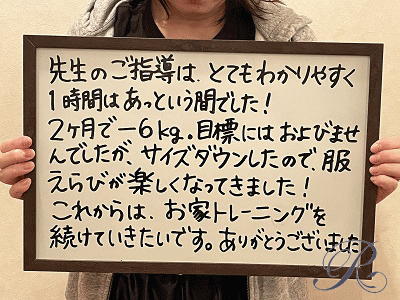 先生のご指導は、とてもわかりやすく
1時間はあっという間でした!
2ヶ月で−6kg。目標にはおよびませ
んでしたが、サイズダウンしたので、服
えらびが楽しくなってきました!
これからは、お家トレーニングを
続けていきたいです。ありがとうございました
R